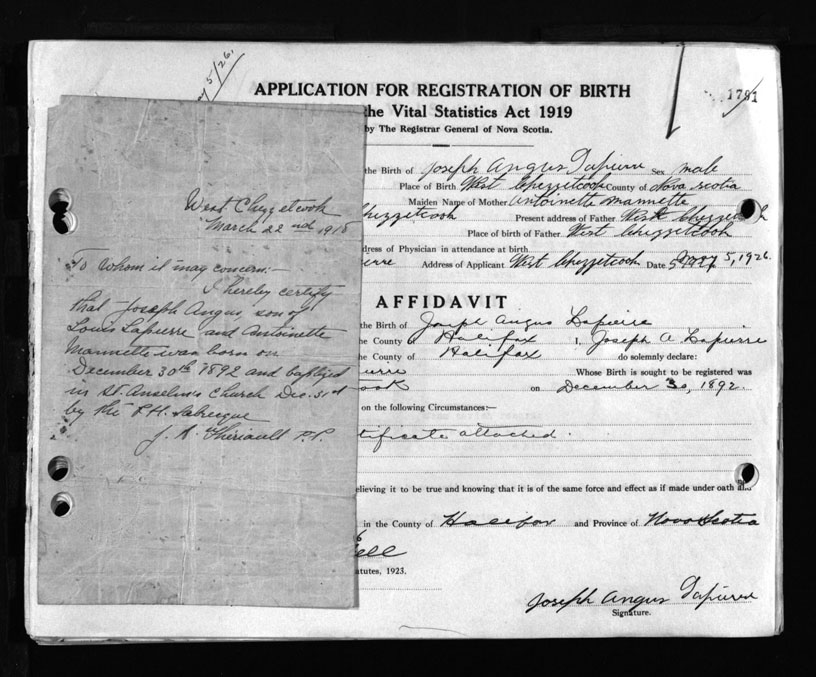 5/26,
APPLICATION FOR REGISTRATION OF BIRTH
the Vital Statistics Act 1919
by The Registrar General of Nova Scotia.
1791
the Birth of Joseph Angus Lapierre Sex male
Place of Birth West Chezzetcook County of Nova Scotia
Maiden Name of Mother Antoinette Mannette
Chezzetcook Present address of Father West Chezzetcook
Place of birth of Father West Chezzetcook
dress of Physician in attendance at birth
erre Address of Applicant West Chezzetcook Date 5, 1926.
AFFIDAVIT
the Birth of Joseph Angus Lapierre
the County of Halifax I, Joseph A Lapierre
the County of Halifax do solemnly declare:
ierre Whose Birth is sought to be registered was
ook on December 30, 1892.
on the following Circumstances:—
tificate attached.
elieving it to be true and knowing that it is of the same force and effect as if made under oath and
in the County of Halifax and Province of Nova Scotia
6
ell
atutes, 1923.
Joseph Angus Lapierre
Signature.
West Chezzetcook
March 22nd 1918
To whom it may concern:-
I hereby certify
that Joseph Angus, son of
Louis Lapierre and Antoinette
Mannette was born on
December 30th 1892 and baptized
in St. Anselm's Church Dec. 31st
by the Labrecque
J. A. Theriault P.P.